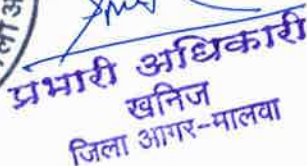 प्रभारी अधिकारी
खनिज
जिला आगर-मालवा